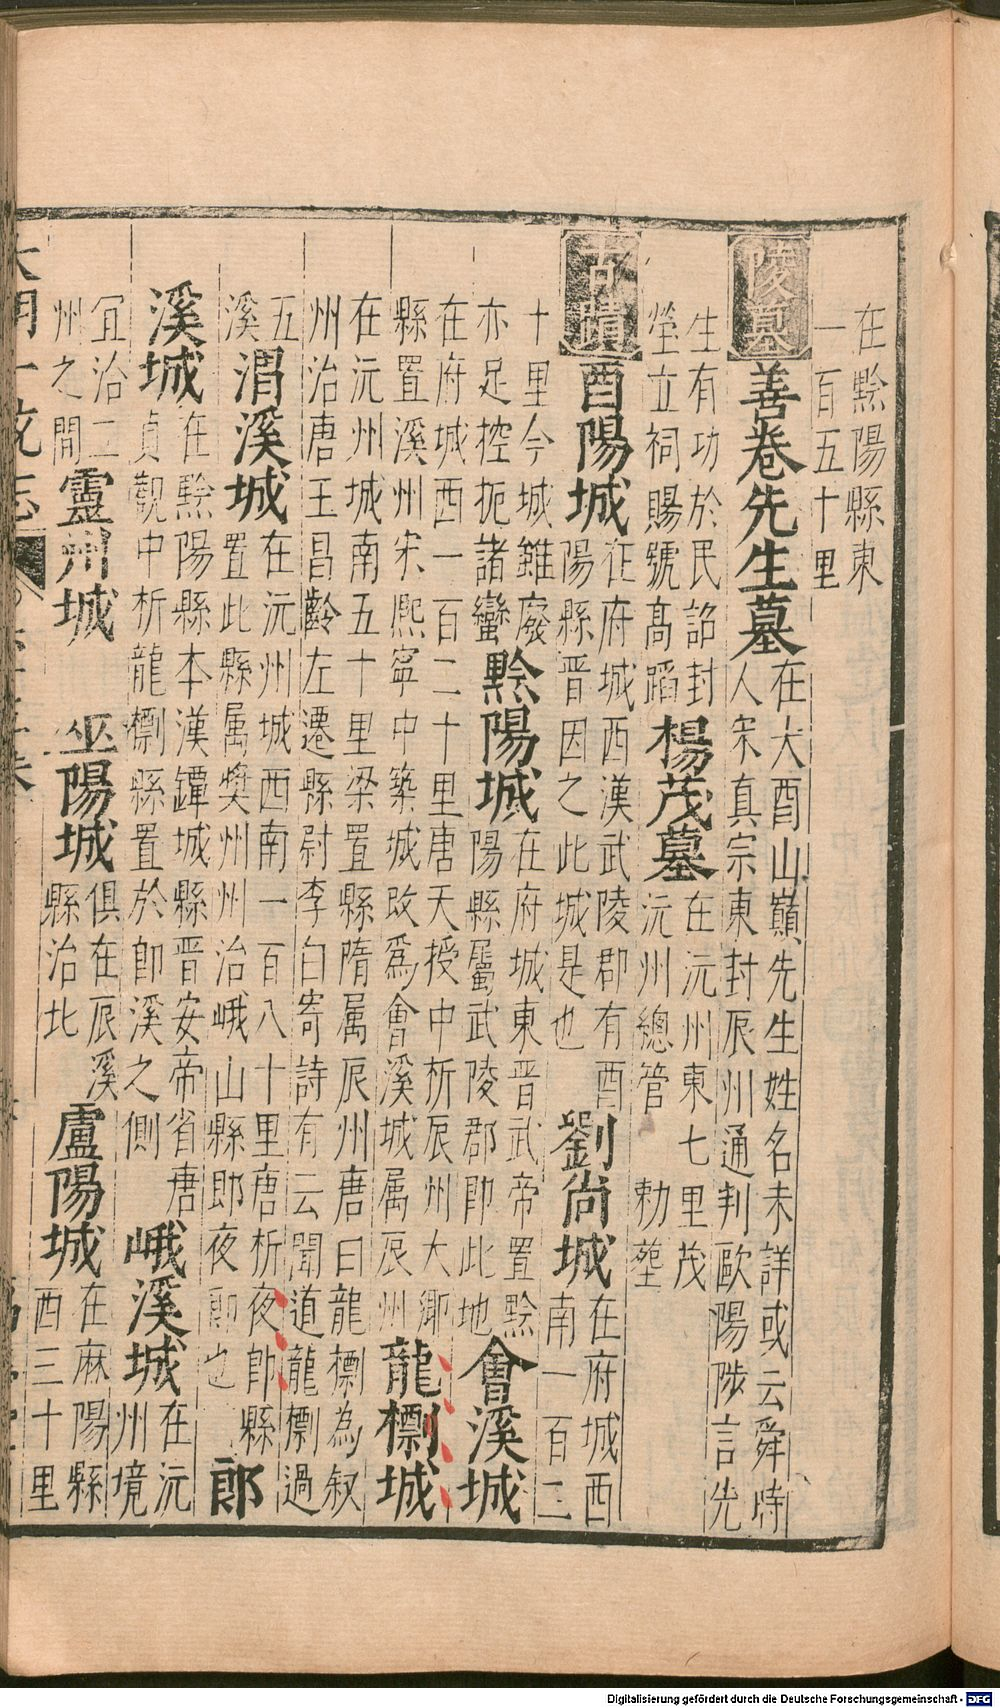 在黔陽縣東
一百五十里
陵墓
善卷先生墓
在大酉山巔先生姓名未詳或云舜時
人宋真宗東封辰州通判歐陽陟言先
生有功於民詔封
塋立祠賜號高蹈
楊茂墓
在沅州東七里茂
沅州總管 勑塟
古蹟
酉陽城
在府城西漢武陵郡有酉
陽縣晉因之此城是也
劉尚城
在府城西
南一百二
十里今城雖廢
亦足控扼諸蠻
黔陽城
在府城東晉武帝置黔
陽縣屬武陵郡即此地
會溪城
在府城西一百二十里唐天授中析辰州大鄉
縣置溪州宋熙寧中築城改為會溪城属辰州
龍標城
在沅州城南五十里梁置縣隋属辰州唐曰龍標為叙
州治唐王昌齡左遷縣尉李白寄詩有云聞道龍標過
五
溪
渭溪城
在沅州城西南一百八十里唐析夜郎縣
置此縣属奬州州治峨山縣即夜郎也
郎
溪城
在黔陽縣本漢鐔城縣晉安帝省唐
貞觀中析龍標縣置於郎溪之側
峨溪城
在沅
州境
宜治二
州之間
靈州城
巫陽城
俱在辰溪
縣治北
盧陽城
在麻陽縣
西三十里
大明一統志
Digitalisierung gefördert durch die Deutsche Forschungsgemeinschaft - DFG